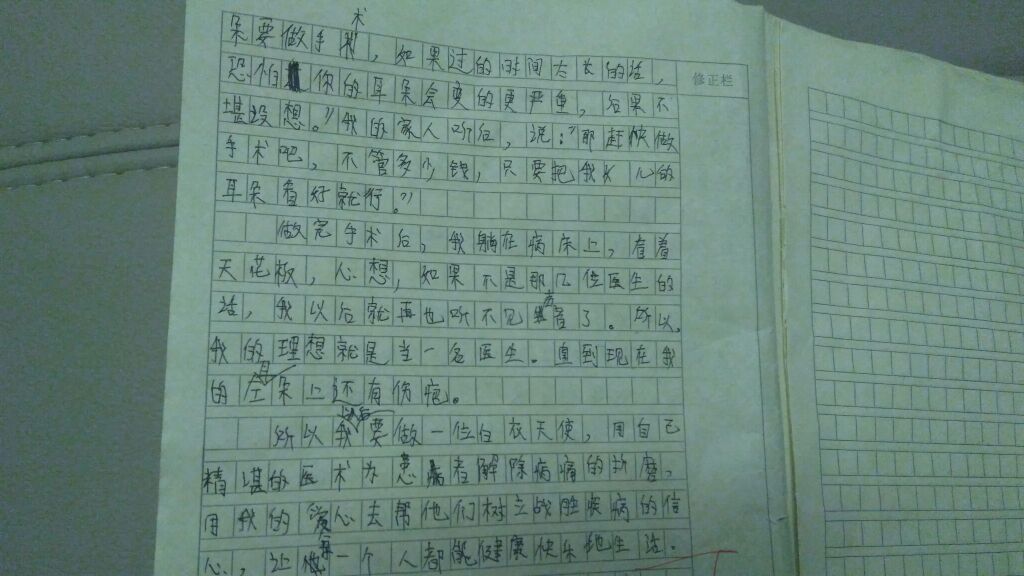 朵要做手术，如果过的时间太长的话，
修正栏
恐怕你的耳朵会变的更严重，后果不
堪设想。”我的家人听后，说：“那赶快做
手术吧，不管多少钱，只要把我女儿的
耳朵看好就行。”
做完手术后，我躺在病床上，看着
天花板，心想，如果不是那几位医生的
话，我以后就再也听不见声音了。所以，
我的理想就是当一名医生。直到现在我
的左耳朵上还有伤疤。
所以我以后要做一位白衣天使，用自己
精堪的医术为患者解除病痛的折磨，
用我的爱心去帮他们树立战胜疾病的信
心，让每一个人都能健康快乐地生活。